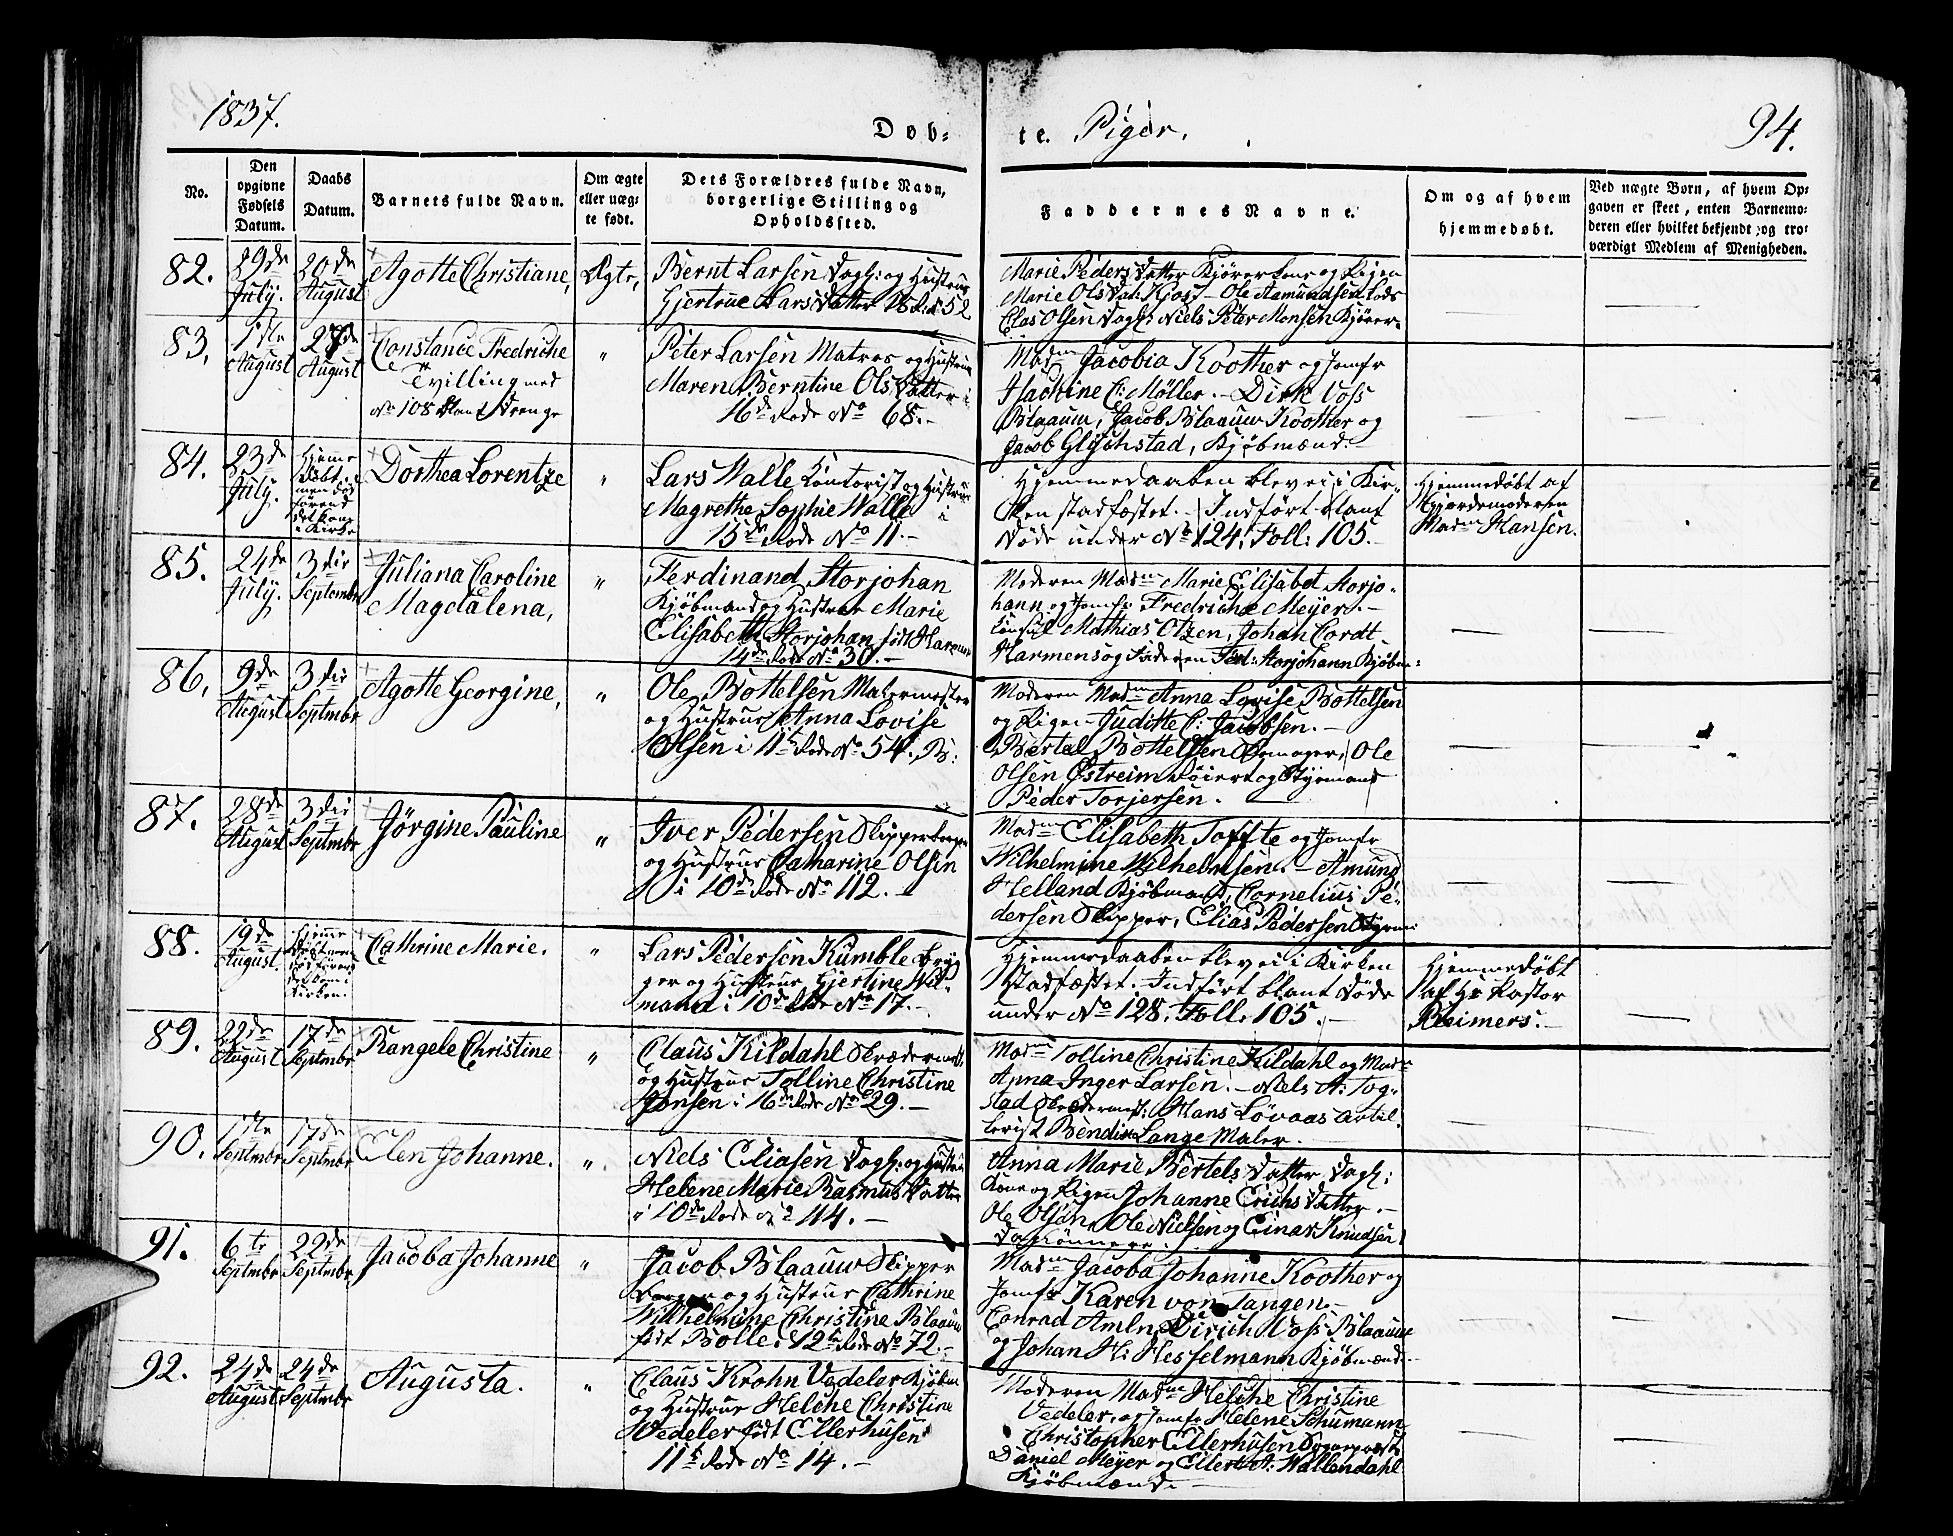 1837.
Døb=
te. Piger.
94.
No.
Den
opgivne
Fødsels
Datum.
Daabs
Datum.
Barnets fulde Navn.
Om ægte
eller uæg-
te født.
Dets Forældres fulde Navn,
borgerlige Stilling og
Opholdssted.
Faddernes Navne.
Om og af hvem
hjemmedøbt.
Ved uægte Børn, af hvem Op-
gaven er skeet, enten Barnemo-
deren eller hvilket bekjendt og tro-
værdigt Medlem af Menigheden.
82.
29de
July.
20de
August
Agotte Christiane,
Ægte,
Bernt Larsen Dagk: og Hustrue
Gjertrue Larsdatter
52
Marie Pedersdatter Kjører Kone og Pigen
Marie Olsdat: Kjos - Ole Aamundsen Lods
Clas Olsen Dagk: Niels Peter Monsen Kjører-
83,
1ste
August
27de
August
Constance Fredriche
Tvilling med
No 108 blant Drenge
"
Peter Larsen Matros og Hustrue
Maren Berntine Olsdatter i
16de Rode No 68.-
Madm Jacobia Koother og Jomfr
Hachine C: Møller.- Dirk Voss
Blaauw, Jacob Blaauw Koother og
Jacob Glychstad, Kjøbmænd.
84.
23de
July.
Hjeme
døbt
men død
førend
det kom
i Kirke
Dorthea Lorentze
"
Lars Walle Contorist og Hustrue
Magrethe Sophie Walle i
15de Rode No 11.-
Hjemmedaaben blev ei i Kir-
ken stadfæstet. - Indført blant
Døde under No 124, Foll: 105.-
Hjemmedøbt af
Gjordemoderen
Madm Hansen.
85.
24de
July.
3die
Septembr
Juliana Caroline
Magdalena,
"
Ferdinand Storjohan
Kjøbmand og Hustrue Marie
Elisabeth Storjohan født Harmens
14de Rode No 30.-
Moderen Madm Marie Elisabet Storjo-
hann og Jomfr Fredriche Meyer.-
Consul Mathias Otzen, Johan Cordt
Harmens og Faderen Ferd: Storjohann Kjøbm:
86,
9de
August
3die
Septmbr
Agotte Georgine,
"
Ole Bottelsen Malermester
og Hustrue Anna Lovise
Olsen i 11te Rode No 54. B:
Moderen Madm Anna Lovise Bottelsen
og Pigen Juditte C: Jacobsen.-
Bertel Bottelsen Skomager, Ole
Olsen Østreim Døiere og Styrmand
Peder Torjersen.
87.
28de
August
3die
Septmbr
Jørgine Pauline
"
Iver Pedersen Skipperborger
og Hustrue Catharine Olsen
i 10de Rode No 112.-
Madm Elisabeth Toffte og Jomfr
Wilhelmine Wilhelmsen.- Amund
Helland Kjøbmand, Cornelius Pe-
dersen Skipper, Elias Pedersen Styrm:
88.
19de
August.
Hjeme
døbt men
død førend
det kom i
Kirken.
Cathrine Marie.
"
Lars Pedersen Kumble
og Hustrue Gjertine Wil-
mand i 10de Rode No 17.-
Hjemmedaaben blev ei i Kirken
stadfæstet. Indført blant Døde
under No 128, Foll: 105.-
Hjemmedøbt
af Hr Pastor
Reimers.-
89.
22de
August
17de
Septmbr
Rangele Christine
"
Claus Kildahl Skrædermst:
og Hustrue Tolline Christine
Jonsen i 16de Rode No 29.-
Madm Tolline Christine Kildahl og Madm
Anna Inger Larsen.- Niels A: Tog-
stad Skrædermst: Hans Løvaas Artil-
lerist Bendix Lange Maler.
90.
1ste
Septmbr
17de
Septmbr
Elen Johanne.
"
Niels Eliasen Dagk: og Hustrue
Helene Marie Rasmusdatter
i 10de Rode No 114.-
Anna Marie Bertelsdatter Dagk:
Kone og Pigen Johanne Erichsdatter.-
Ole Olsen, Ole Nielsen og Einar Knudsen
91.
6te
Septmbr
22de
Septmbr
Jacoba Johanne
"
Jacob Blaauw Skipper
Borger og Hustrue Cathrine
Wilhelmine Christine Blaauw
født Bolle i 12te Rode No 72.-
Madm Jacoba Johanne Koother og
Jomfr Karen von Tangen.-
Conrad Amln, Dirich Voss Blaauw
og Johan H: Hesselmann Kjøbmænd.-
92.
24de
August
24de
Septmbr
Augusta.
"
Claus Krohn Vedeler Kjøbm
og Hustrue Helche Christine
Vedeler født Ellerhusen
11te Rode No 14.-
Moderen Madm Helche Christine
Vedeler, og Jomfr Helene Schumann
Christopher Ellerhusen Sogneprest
Daniel Meyer og Ellert A: Wallendahl
Kjøbmænd.-